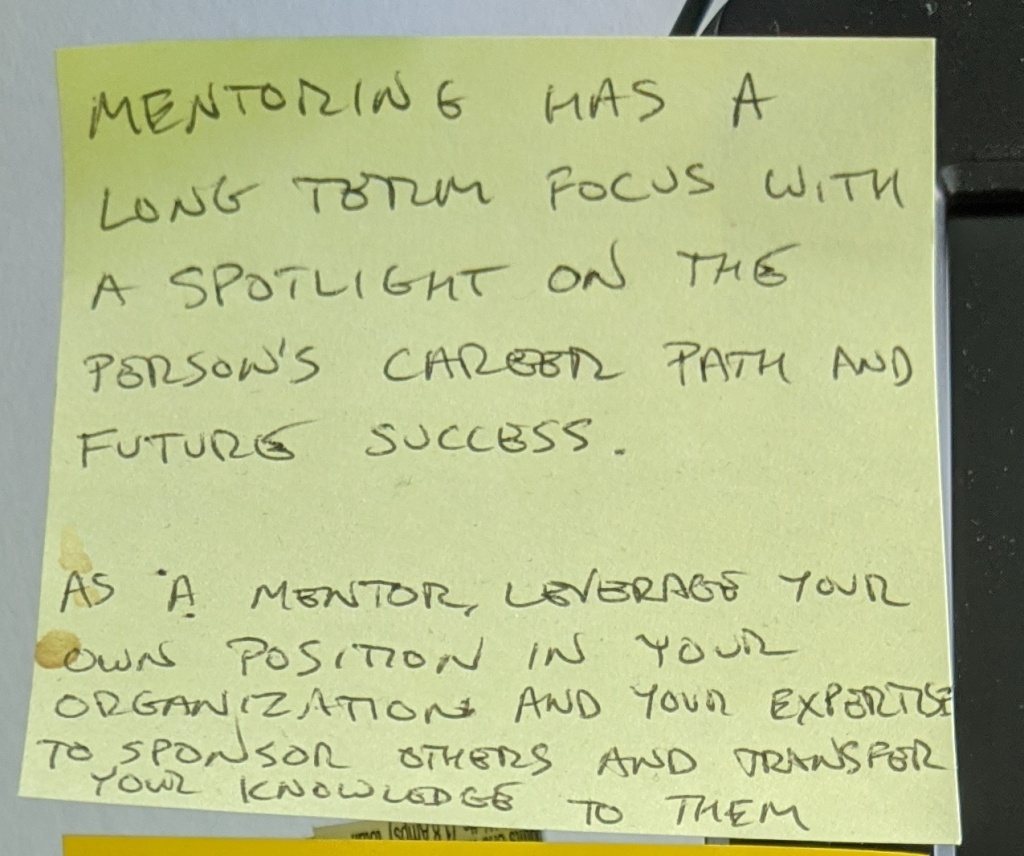 MENTORING HAS A
LONG TERM FOCUS WITH
A SPOTLIGHT ON THE
PERSON'S CAREER PATH AND
FUTURE SUCCESS.
AS A MENTOR, LEVERAGE YOUR
OWN POSITION IN YOUR
ORGANIZATION AND YOUR EXPERTISE
TO SPONSOR OTHERS AND TRANSFER
YOUR KNOWLEDGE TO THEM